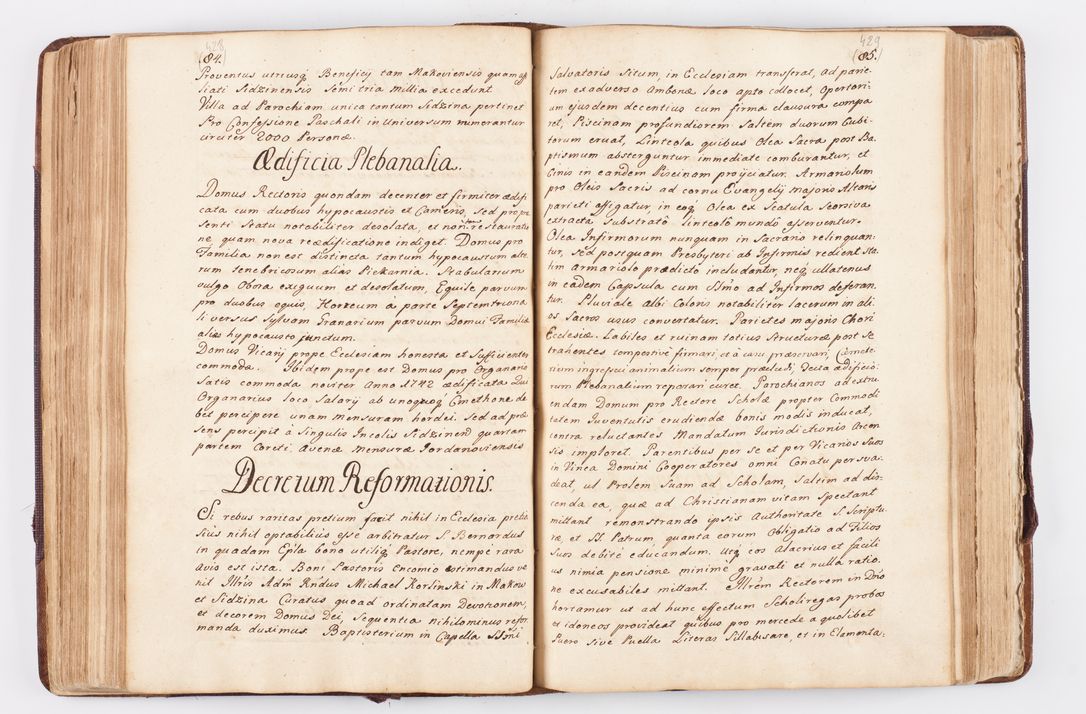 428
(84.
Proventus utriusq Beneficÿ tam Makoviensis quam af
liati Sidzinensis Semi tria Millia excedunt
Villa ad Parochiam unica tantum Sidzina pertinet
Pro Confessione Paschali in Universum numerantur
circiter 2000 Personæ.
Ædificia Plebanalia.
Domus Rectoris quondam decenter et firmiter ædifi
cata cum duobus hypocaustis et Cameris, sed præ
senti Statu notabiliter desolata, et non tam restauratio
ne quam nova reædificatione indiget. Domus pro
Familia non est distincta tantum hypocaustum alte
rum tenebricosum alias Piekarnia. Stabulanum
vulgo Obora exiguum et desolatum, Equile parvum
pro duobus equis, Horreum à parte Septemtriona
li versus Sylvam Granarium parvum Domui Familiæ
alias hypocausto junctum.
Domus Vicarÿ prope Ecclesiam honesta et Sufficienter
commoda. Ibidem prope est Domus pro Organario
Satis commoda noviter Anno 1742 ædificata Qui
Organarius loco Salarÿ ab unoquoq Cmethone de
bet percipere unam mensuram hordei. Sed ad præ
sens percipit à Singulis Incolis Sidzinen quartam
partem Coreti, Avenæ mensuræ Jordanoviensis
Decretum Reformationis.
Si rebus raritas pretium facit nihil in Ecclesia pretio
sius nihil optabilius esse arbitratur S. Bernardus
in quadam Epla bono utiliq Pastore, nempè rara
avis est ista. Boni Pastoris Encomio æstimandus ve
nit Illris Adm Rndus Michael Korlinski in Makow
et Sidzina Curatus quoad ordinatam Devotionem,
et decorem Domus Dei, Sequentia nihilominus refor
manda duximus. Baptisterium in Capella SSmi
429
(85.
Salvatoris Situm, in Ecclesiam transferat, ad parie
tem ex adverso Ambonæ loco apto collocet, Opertori
um ejusdem decentius cum firma clausura compa
ret, Piscinam profundiorem Saltem duorum Cubi
torum eruat, Linteola quibus Olea Sacra post Ba
ptismum absterguntur immediate comburantur, et
Cinis in eandem Piscinam projiciatur. Armariolum
pro Oleis Sacris ad cornu Evangelÿ majoris Altaris
parieti affigatur, in eoq Olea ex Scatula Seorsiva
extracta Substratô linteolô mundô asserventur.
Olea Infirmorum nunquam in Sacrario relinquan-
tur, sed postquam Presbyteri ab Infirmis redient Sta
tim armariolo prædicto includantur, neq ullatenus
in eadem Capsula cum SSmo ad Infirmos deferan
tur. Pluviale albi Coloris notabiliter lacerum in ali
os Sacros usus convertatur. Parietes majoris Chori
Ecclesiæ Labiles et ruinam totius Structuræ post se
trahentes compostivè firmari, et à casu præservari, Cæmete
rium ingressui animalium semper præcludi, Tecta ædificio-
rum Plebanalium reparari curet. Parochianos ad extru
endam Domum pro Rectore Scholæ propter Commodi
tatem Juventutis erudiendæ bonis modis inducat,
contra reluctantes Mandatum Jurisdictionis Arcen
sis imploret. Parentibus per se et per Vicarios Suos
in Vinea Domini Cooperatores omni Conatu persva-
deat, ut Prolem Suam ad Scholam, Saltim ad dis-
cenda ea, quæ ad Christianam vitam Spectant
mittant remonstrando ipsis Authoritate S. Scriptu
ræ, et SS. Patrum, quanta eorum Obligatio ad Filios
Suos debitè educandum. Utq eos Alacrius et facili
us nimia pensione minimè gravati et nulla ratio-
ne excusabiles mittant. Illrem Rectorem in Dno
hortamur ut ad hunc effectum Scholiregas probos
et idoneos provideat quibus pro mercede a quolibet
Puero sive Puella Literas Sillabisare, et in Elementa-